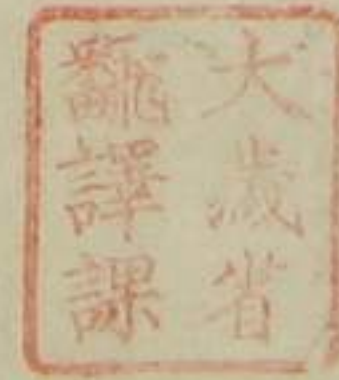 大蔵省
飜譯課